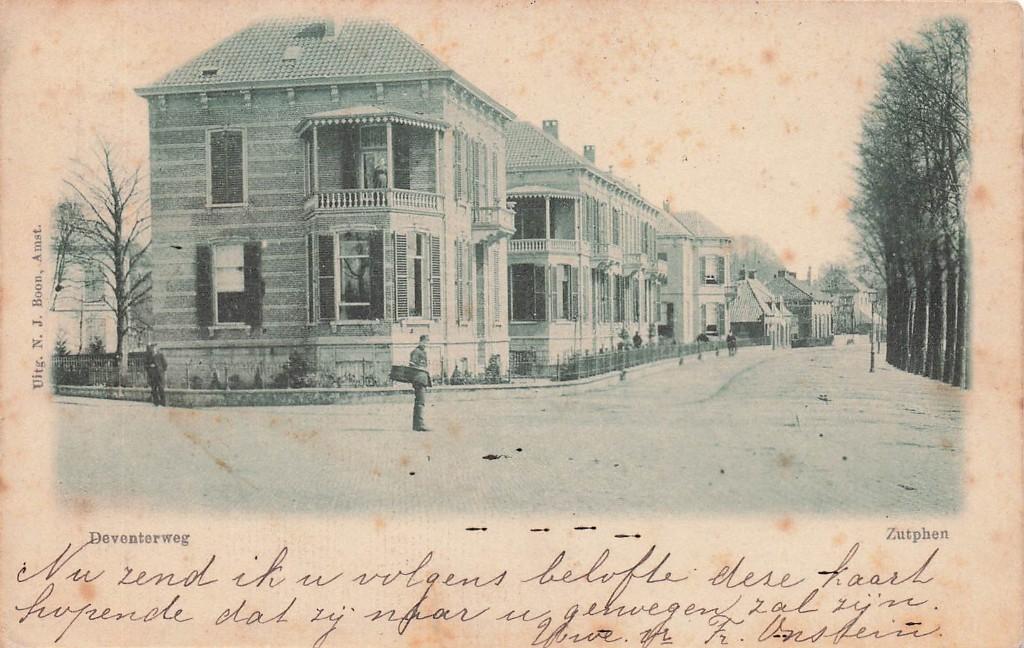 Uitg. N. J. Boon, Amst.
Deventerweg
Zutphen
Nu zend ik u volgens belofte deze kaart
hopende dat zij naar u genoegen zal zijn.
Fr. Onstein.